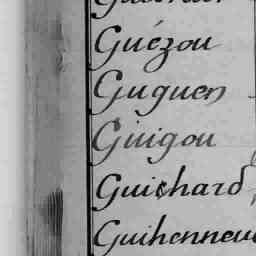 Guézou
Guguen
Guigou
Guichard
Guihenneu